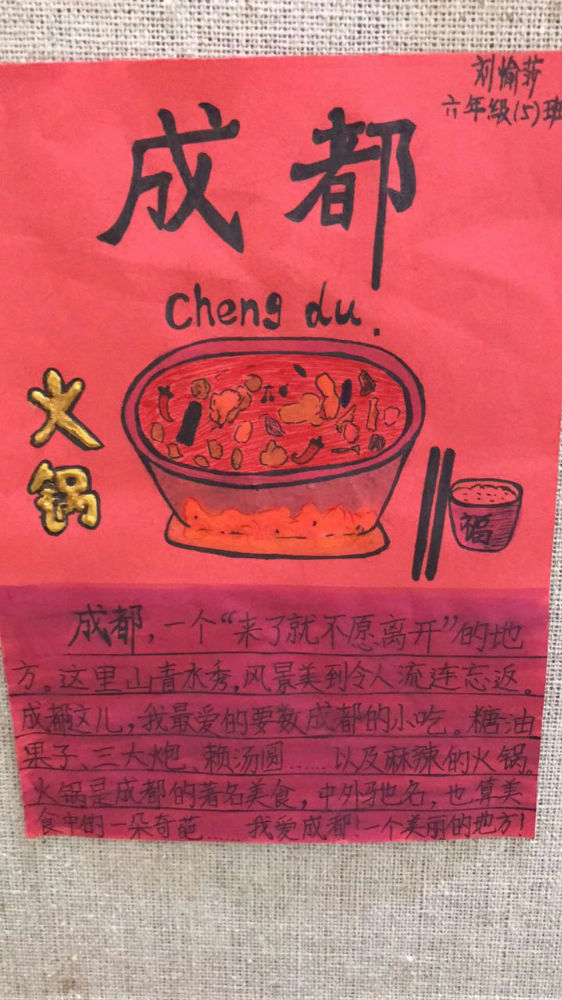 刘愉莎
六年级(5)班
成都
cheng du.
火锅
福
成都，一个“来了就不愿离开”的地
方。这里山青水秀，风景美到令人流连忘返。
成都这儿，我最爱的要数成都的小吃。糖油
果子、三大炮、赖汤圆……以及麻辣的火锅。
火锅是成都的著名美食，中外驰名，也算美
食中的一朵奇葩……我爱成都！一个美丽的地方！